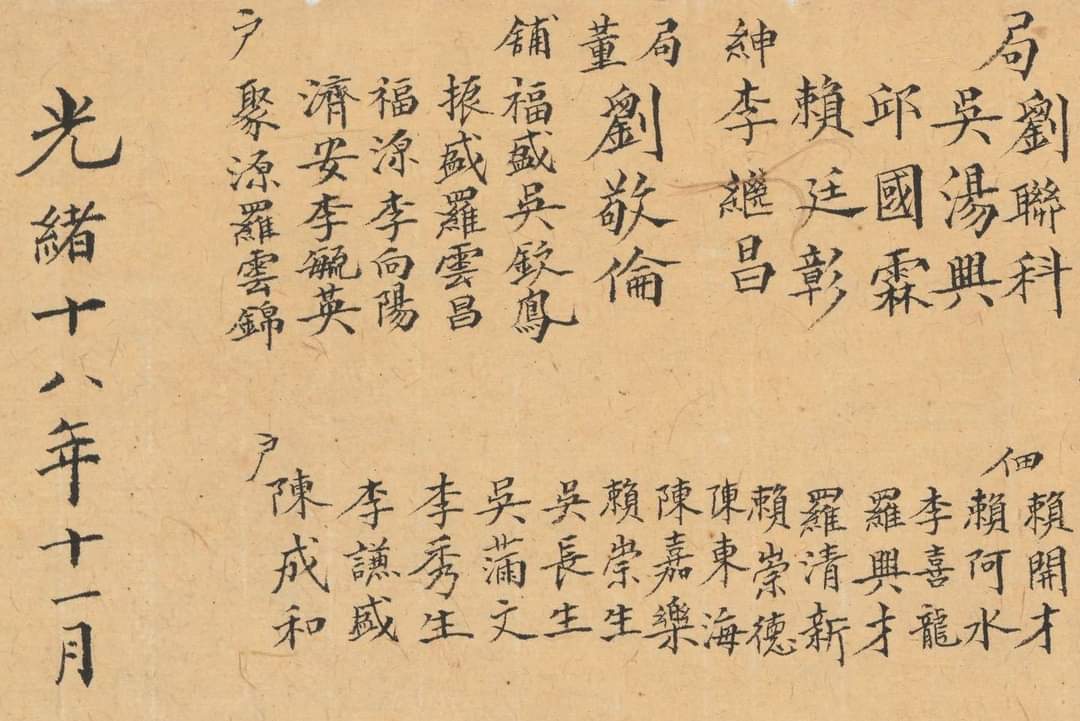 局紳
劉聯科
吳湯興
邱國霖
賴廷彰
李繼昌
局董
劉敬倫
舖户
福盛吳欽鳳
振盛羅雲昌
福源李向陽
濟安李毓英
聚源羅雲錦
佃户
賴開才
賴阿水
李喜龍
羅興才
羅清新
賴崇德
陳東海
陳嘉樂
賴崇生
吳長生
吳滿文
李秀生
李謙盛
陳成和
光緒十八年十一月